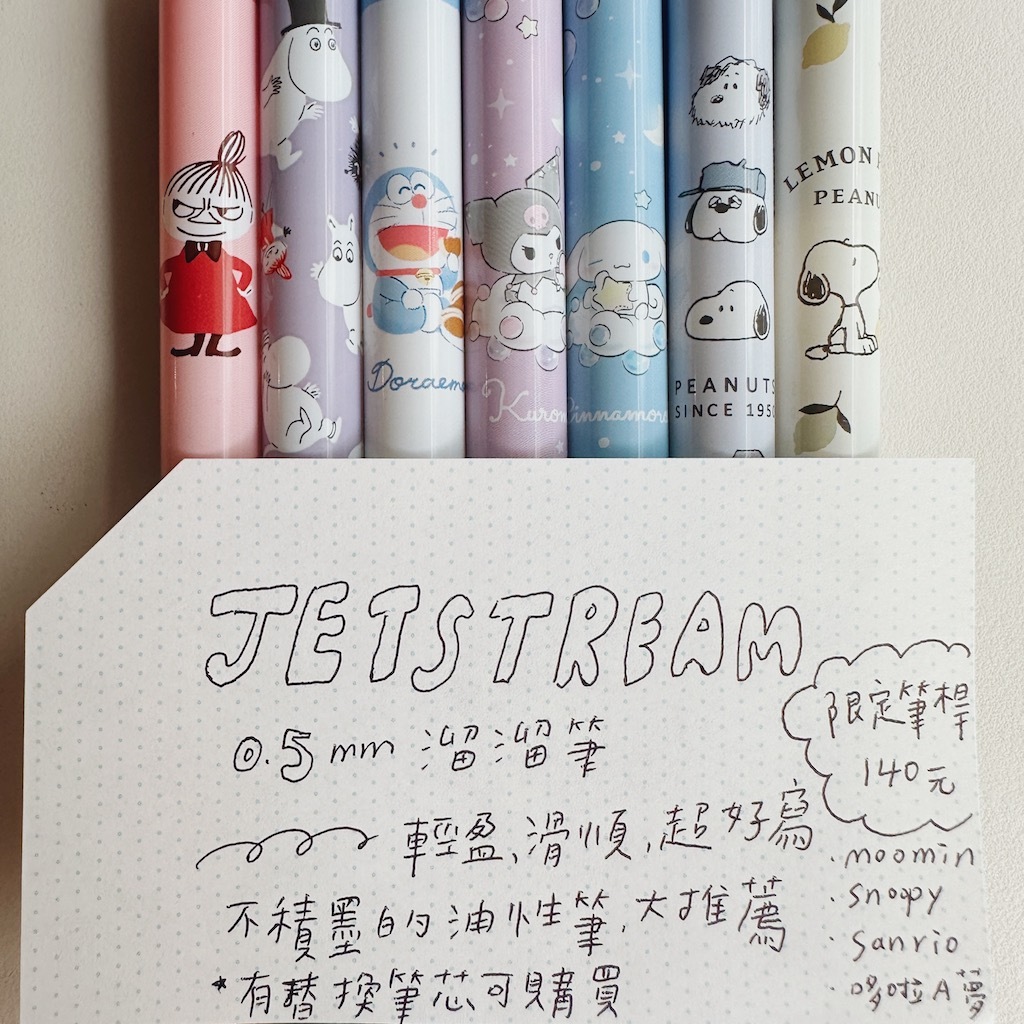 Doraemo
Kurom
innamoro
PEANUTS
SINCE 1950
LEMON
PEANU
JETSTREAM
0.5 mm 溜溜筆
限定筆桿
140元
輕盈,滑順,超好寫
不積墨的油性筆,大推薦
*有替換筆芯可購買
·moomin
·Snoopy
·Sanrio
·哆啦A夢